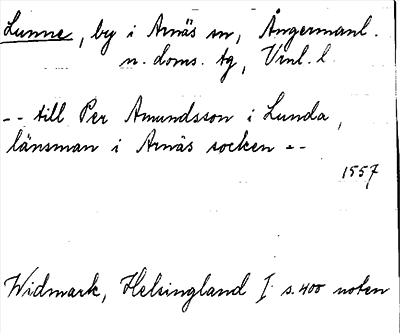 Lunne, by i Arnäs sn, Ångermanl.
n. doms. tg, Vnl. l.
-- till Per Amundsson i Lunda,
länsman i Arnäs socken --
1557
Widmark, Helsingland I s. 400 noten